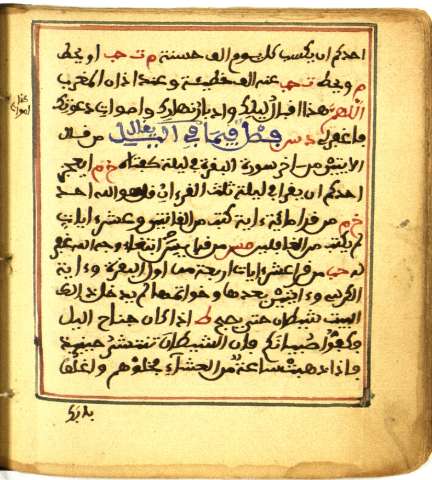 احدكم ان يكسب كل يوم الف حسنة م ت حب او يحط
م ويحط ت حب عنه الف خطيئة وعند اذان المغرب
اللهم هذا اقبال ليلك وادبار نهارك واصوات دعوتك
فاغفر لي د مس فصل فيما يقال في الليل من قرا
الايتين من اخر سورة البقرة في ليلة كفتاه خ م ايعجز
احدكم ان يقرا في ليلة ثلث القرءان قل هو الله احد
خ م من قرا مائة ءاية كتب من القانتين وعشر ءايات
لم يكتب من الغافلين مس من قرا يس ابتغاء وجه الله غفر
له حب من قرا عشر ءايات اربعة من اول البقرة وءاية
الكرسي وءايتين بعدها وخواتمها لم يدخل ذلك
البيت شيطان حتى يصبح ط اذا كان جناح الليل
فكفوا صبيانكم فان الشيطان تنتشر حينئذ
فاذا ذهب ساعة من العشاء فخلوهم واغلق
بابك